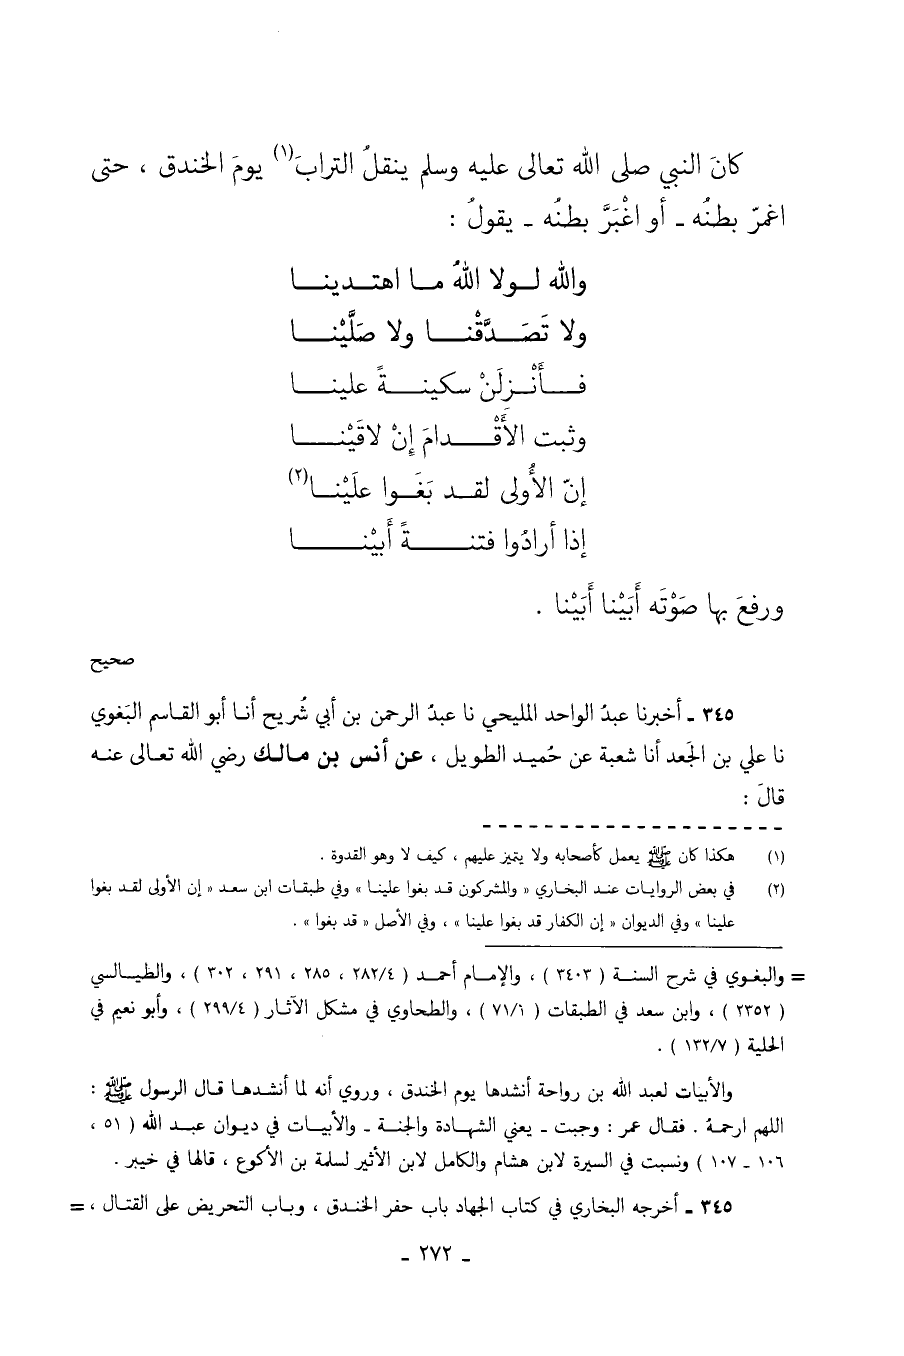 كانَ النبي صلى الله تعالى عليه وسلم ينقلُ الترابَ(١) يومَ الخندق ، حتى
اغمرّ بطنُه ـ أو اغْبَرَّ بطنُه ـ يقولُ :
والله لـولا اللهُ مـا اهتـدينـا
ولا تَصَـدَّقْنـا ولا صَلَّيْنـا
فـأَنْـزلَنْ سكينـةً علينـا
وثبت الأَقْـدامَ إنْ لاقَيْنـا
إنّ الأُولى لقـد بَغَـوا علَيْنـا(٢)
إذا أرادُوا فتنـةً أَبيْنـا
ورفعَ بها صَوْتَه أَبَيْنا أَبَيْنا .
صحيح
٣٤٥ ـ أخبرنا عبدُ الواحد المليحي نا عبدُ الرحمن بن أبي شُريح أنـا أبو القـاسم البَغوي
نا علي بن الجَعد أنا شعبة عن حُميـد الطويل ، عـن أنـس بـن مـالـك رضي الله تعـالى عنـه
قالَ :
(١) هكذا كان ﷺ يعمل كأصحابه ولا يتميز عليهم ، كيف لا وهو القدوة .
(٢) في بعض الروايـات عنـد البخـاري « والمشركون قـد بغوا علينـا » وفي طبقـات ابن سعـد « إن الأولى لقـد بغوا
علينا » وفي الديوان « إن الكفار قد بغوا علينا » ، وفي الأصل « قد بغوا » .
= والبغـوي في شرح السنـة ( ٣٤٠٣ ) ، والإمـام أحمـد ( ٢٨٢/٤ ، ٢٨٥ ، ٢٩١ ، ٣٠٢ ) ، والطيـالـسي
( ٢٣٥٢ ) ، وابن سعد في الطبقات ( ٧١/١ ) ، والطحاوي في مشكل الآثـار ( ٢٩٩/٤ ) ، وأبو نعيم في
الحلية ( ١٣٢/٧ ) .
والأبيات لعبد الله بن رواحة أنشدها يوم الخندق ، وروي أنه لما أنشدهـا قـال الرسول ﷺ :
اللهم ارحمهُ . فقـال عمر : وجبت ـ يعني الشهـادة والجنـة ـ والأبيـات في ديوان عبـد الله ( ٥١ ،
١٠٦ ـ ١٠٧ ) ونسبت في السيرة لابن هشام والكامل لابن الأثير لسلمة بن الأكوع ، قالها في خيبر .
٣٤٥ ـ أخرجه البخاري في كتاب الجهاد باب حفر الخنـدق ، وبـاب التحريض على القتـال ، =
ـ ٢٧٢ ـ